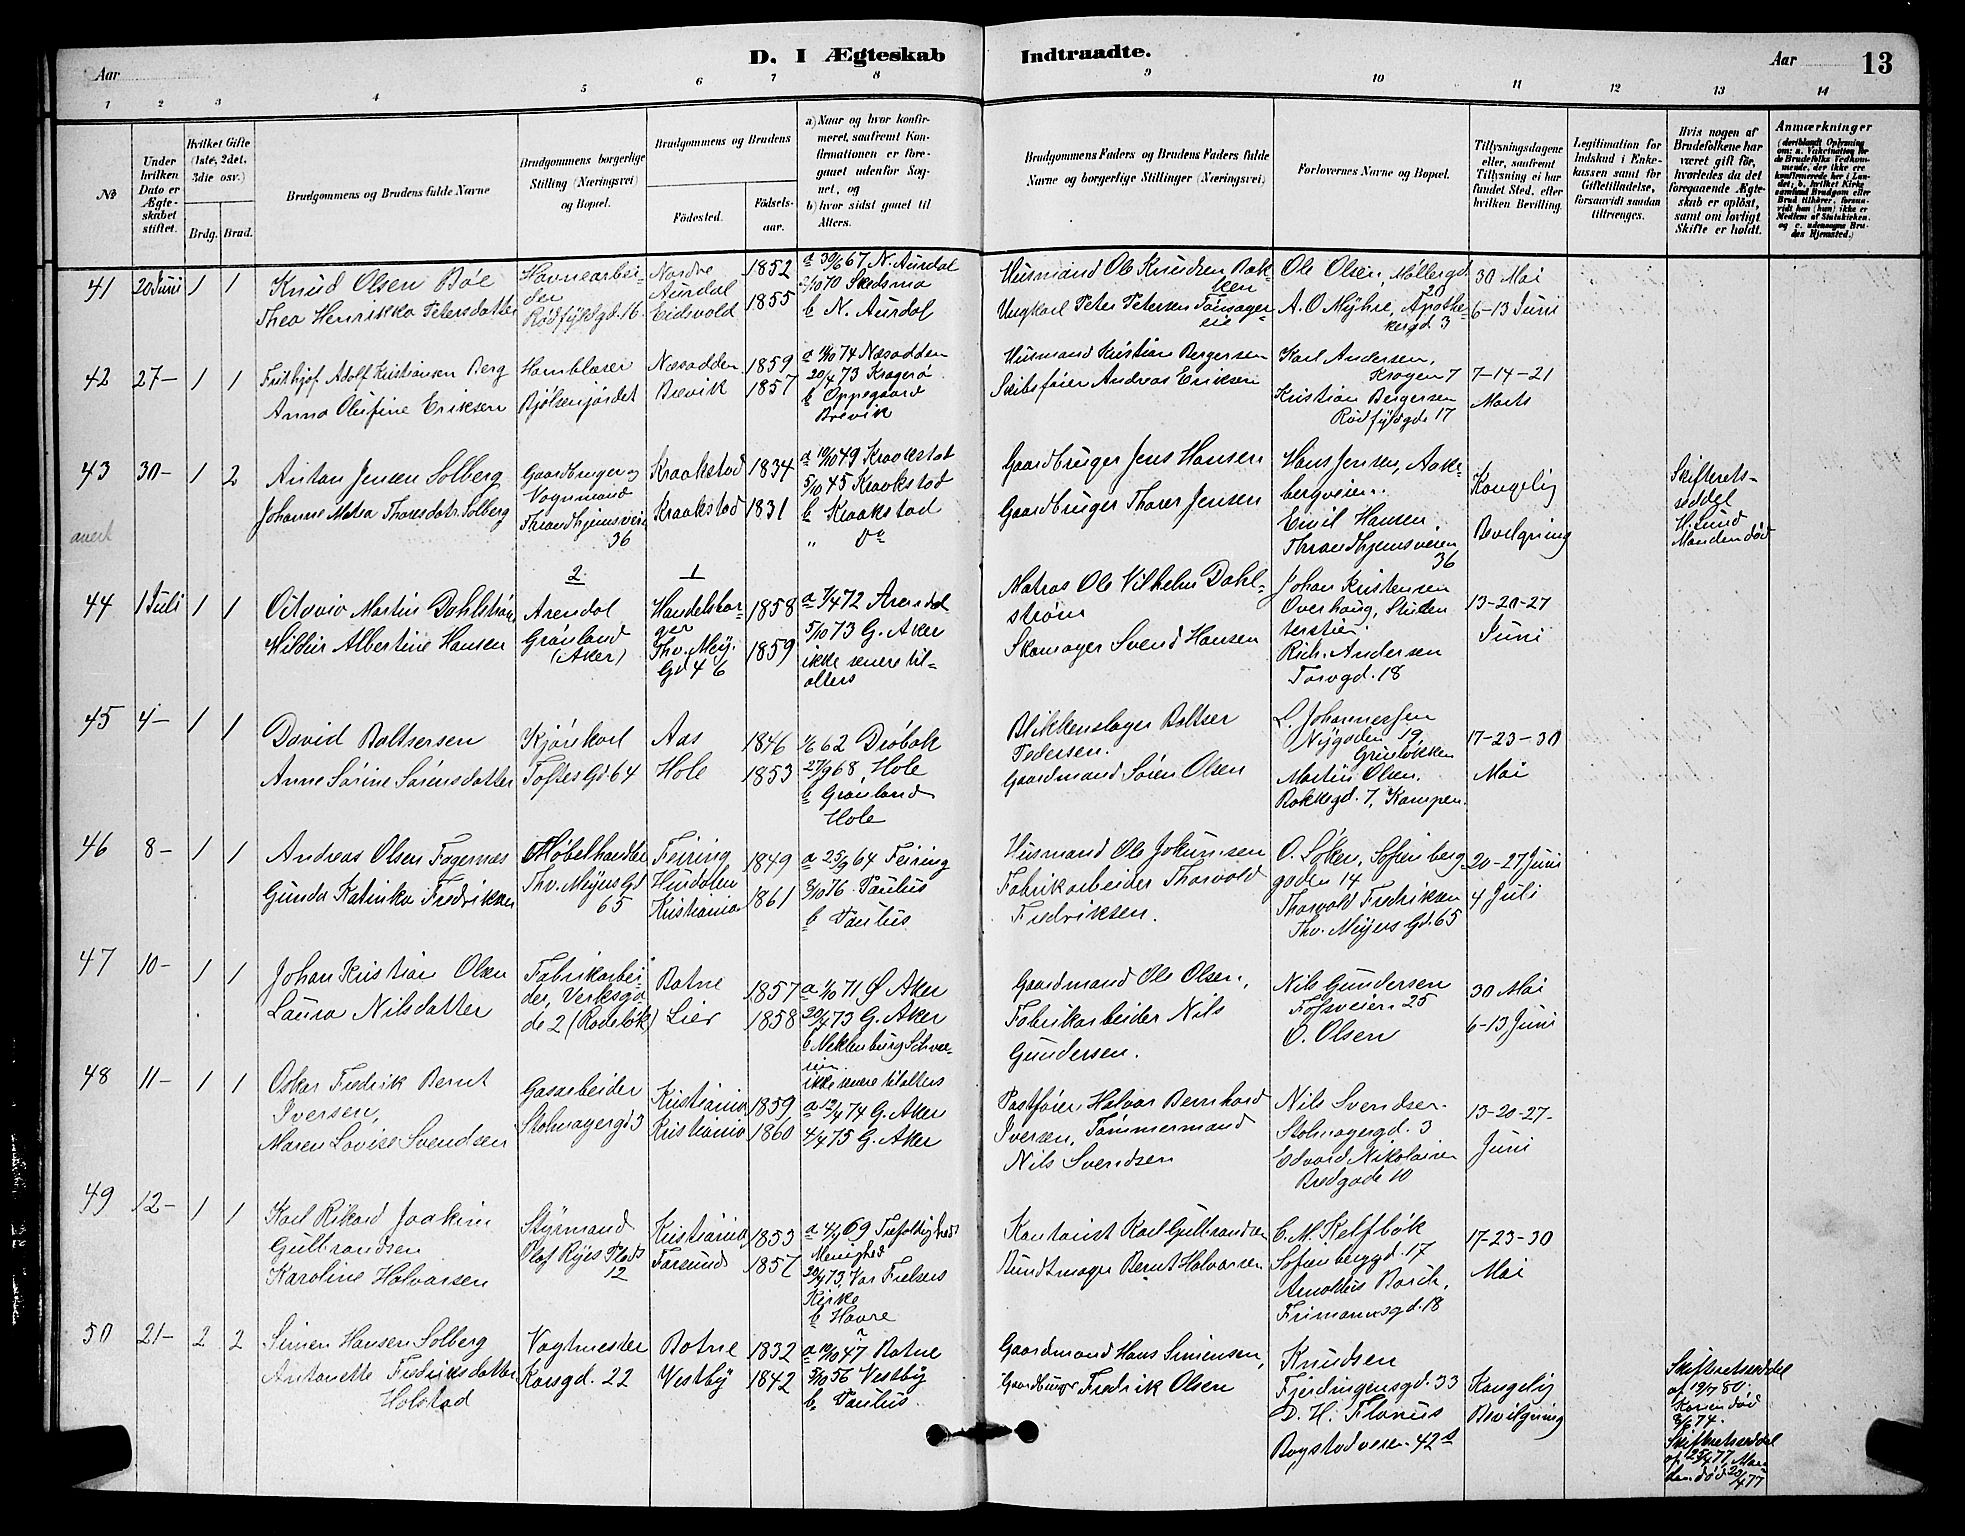 Aar D. I Ægteskab Indtraadte. Aar 13
1 2 3 4 5 6 7 8 9 10 11 12 13 14
№
Under hvilken Dato er Ægteskabet stiftet.
Hvilket Gifte (1ste, 2det, 3die osv.)
Brdg. Brud.
Brudgommens og Brudens fulde Navne
Brudgommens borgerlige Stilling (Næringsvei) og Bopæl.
Brudgommens og Brudens
Fødested.
Fødselsaar.
a) Naar og hvor konfirmeret, saafremt Konfirmationen er foregaaet udenfor Sognet, og
b) hvor sidst gaaet til Alters.
Brudgommens Faders og Brudens Faders fulde Navne og borgerlige Stillinger (Næringsvei)
Forlovernes Navne og Bopæl.
Tillysningsdagene eller, saafremt Tillysning ei har fundet Sted, efter hvilken Bevilling.
Legitimation for Indskud i Enkekassen samt for Giftetilladelse, forsaavidt saadan tiltrænges.
Hvis nogen af Brudefolkene har været gift før, hvorledes da det foregaaende Ægteskab er opløst, samt om lovligt Skifte er holdt.
Anmærkninger (deriblandt Oplysning om: a. Vakcination for de Brudefolks Vedkommende, der ikke ere konfirmerede her i Landet; b. hvilket Kirkesamfund Brudgom eller Brud tilhører, forsaavidt han (hun) ikke er Medlem af Statskirken, og c. udensogns Brudes Hjemsted.)
41 20 Juni 1 1
Knud Olsen Bøe
Thea Henrikka Petersdatter
Havnearbeider
Rødfyldgd. 16
Nordre Aurdal
Eidsvold
1852
1855
a 30/6 67 N. Aurdal
/10 70 Skedsmo
b N. Aurdal
Husmand Ole Knudsen Bakken
Ungkarl Peter Petersen Tønsagereie
Ole Olsen, Møllergd 20
A. O. Myhre, Apothekergd 3
30 Mai
6-13 Juni
42 27- 1 1
Frithjof Adolf Kristiansen Berg
Anna Olufine Eriksen
Hornblaser
Bjølsenjordet
Næsodden
Brevik
1859
1857
a /10 74 Næsodden
20/4 73 Kragerø
b Oppegaard
Brevik
Husmand Kristian Bergersen
Skibsfører Andreas Eriksen
Karl Andersen,
Krogen 7
Kristian Bergersen
Rødfyldgd 17
7-14-21
Marts
43 30- 1 2
Anton Jensen Solberg
Johanne Matea Thoresdatr. Solberg
Gaardbruger og Vognmand
Throndhjemsveien 36
Kraakstad
Kraakstad
1834
1831
a 10/10 49 Kraakstad
5/10 45 Kraakstad
b Kraakstad
" do
Gaardbruger Jens Hansen
Gaardbruger Thorer Jensen
Hans Jensen, Aakebergveien.
Emil Hansen,
Throndhjemsveien 36
Kongelig
Bevilgning
Skifteretsseddel
Manden død
44 1 Juli 1 1
Oktavio Martin Dahlstrøm
Hilda Albertine Hansen
2
Arendal
Grønland
(Aker)
1
Handelsborger
Thv. Mey. Gd 46
1858
1859
a 7/4 72 Arendal
5/10 73 G. Aker
ikke senere tilalters
Matros Ole Vilhelm Dahlstrøm
Skomager Svend Hansen
Johan Kristensen
Overhaug, Studenterstien
Rich. Andersen
Torvgd. 18
13-20-27
Juni
45 4- 1 1
David Baltsersen
Anne Sørine Sørensdatter
Kjørekarl
Toftes Gd 64
Aas
Hole
1846
1853
/6 62 Drøbak
27/9 68 Hole
b Grønland
Hole
Blikkenslager Baltser Pedersen.
Gaardmand Søren Olsen
L. Johannessen
Nygaden 19
Grünløkken
Martin Olsen.
Bakkegd. 7, Kampen.
17-23-30
Mai
46 8- 1 1
Andreas Olsen Fagernæs
Gunda Katinka Fredriksen
Møbelhandler
Thv. Meyers Gd 65
Feiring Hurdalen
Kristiania
1849
1861
a 25/9 64 Feiring
8/10 76 Paulus
b Paulus.
Husmand Ole Jokumsen
Fabrikarbeider Thorvald Fredriksen.
O. Løken, Sofienberggaden 14
Thorvald Fredriksen
Thv. Meyers Gd. 65
20-27 Juni
4 Juli
47 10- 1 1
Johan Kristian Olsen
Laura Nilsdatter
Fabrikarbeider, Verksgade 2 (Rodeløk)
Botne
Lier
1857
1858
a /10 71 Ø Aker
20/4 73 G. Aker
b Meklenburg Schwerin
ikke senere tilalters
Gaardmand Ole Olsen,
Fabrikarbeider Nils Gundersen.
Nils Gundersen
Fossveien 25
O. Olsen
30 Mai
6-13 Juni
48 11- 1 1
Oskar Fredrik Bernt Iversen,
Maren Lovise Svendsen
Gasarbeider
Stolmagergd 3
Kristiania
Kristiania
1859
1860
a 12/4 74 G. Aker
4/4 75 G. Aker
Postfører Halvar Bernhard
Iversen, Tømmermand
Nils Svendsen
Nils Svendsen
Stolmagergd. 3
Edvard Nikolaisen
Bredgade 10
13-20-27-
Juni
49 12- 1 1
Karl Rikard Joakim Gulbrandsen
Karoline Halvorsen
Styrmand
Olaf Ryes Plads 12
Kristiania
Farsund
1853
1857
a 4/4 69 Trefoldigheds Menighed
20/4 73, Vor Frelsers Kirke
b Havre
Kontorist Karl Gulbrandsen
Bundtmager Bernt Halvorsen
C. M. Kelfbøk
Sofienberggd. 17
Arnoldus Borch,
Frimannsgd. 18
17-23-30
Mai
50 21- 2 2
Simen Hansen Solberg
Antonette Fredriksdatter Holstad
Vagtmester
Korsgd. 22
Botne
Vestby
1832
1842
a 10/10 47 Botne
5/10 56 Vestby
b Paulus.
Gaardmand Hans Simensen,
Gaardbruger Fredrik Olsen
Knudsen
Fjerdingensgd. 33
D. H. Florus
Bogstadveien 42
Kongelig
Bevilgning
Skifteretseddel
af 19/7 80.
Konen død
8/6 74.
Skifteretseddel
af 25/4 77, Manden død 20/4 77